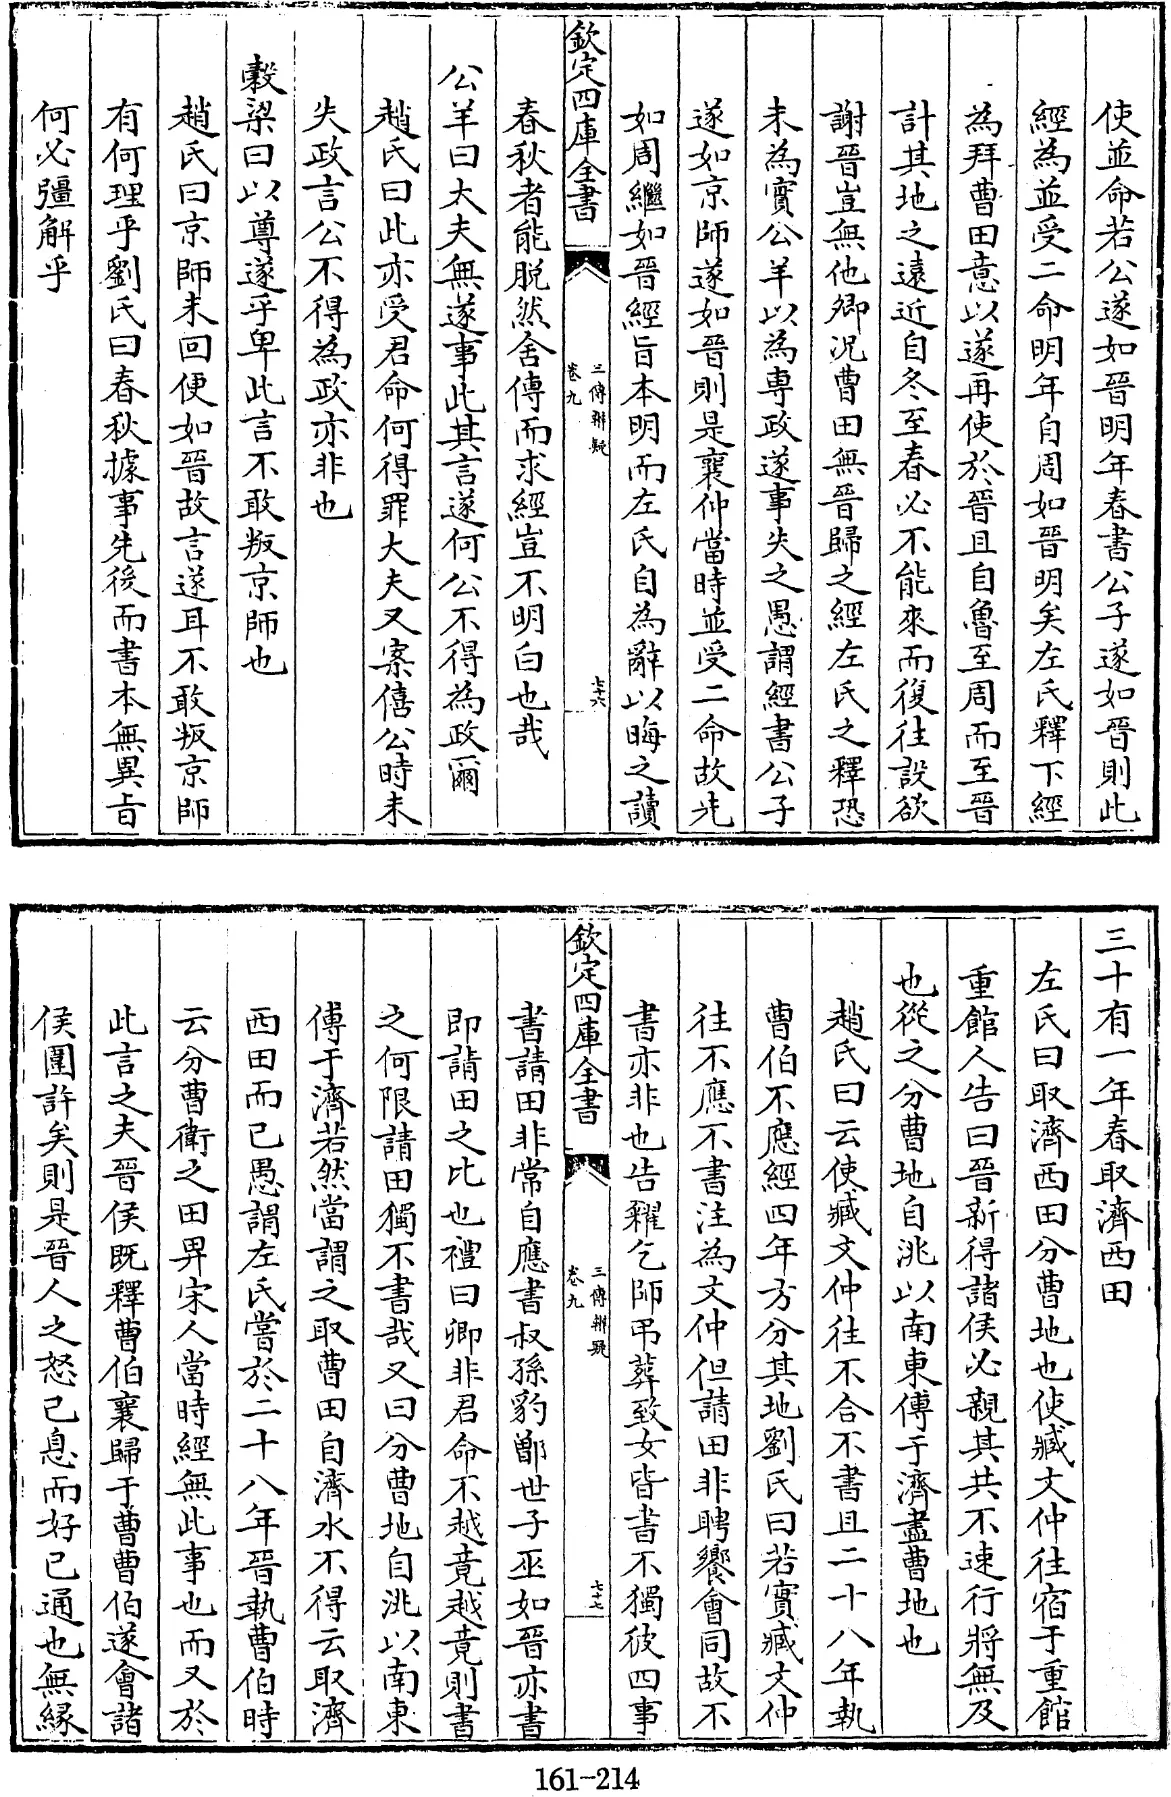 使並命若公遂如晉明年春書公子遂如晉則此
經為並受二命明年自周如晉明矣左氏釋下經
為拜曹田意以遂再使於晉且自魯至周而至晉
計其地之遠近自冬至春必不能來而復往設欲
謝晉豈無他卿况曹田無晉歸之經左氏之釋恐
未為實公羊以為専政遂事失之愚謂經書公子
遂如京師遂如晉則是襄仲當時並受二命故先
如周繼如晉經旨本明而左氏自為辭以晦之讀
欽定四庫全書
三傳辨疑
卷九
七十六
春秋者能脱然舍傳而求經豈不明白也哉
公羊曰大夫無遂事此其言遂何公不得為政爾
趙氏曰此亦受君命何得罪大夫又案僖公時未
失政言公不得為政亦非也
穀梁曰以尊遂乎卑此言不敢叛京師也
趙氏曰京師未回便如晉故言遂耳不敢叛京師
有何理乎劉氏曰春秋據事先後而書本無異旨
何必彊解乎
三十有一年春取濟西田
左氏曰取濟西田分曹地也使臧文仲往宿于重館
重館人告曰晉新得諸侯必親其共不速行將無及
也從之分曹地自洮以南東傅于濟盡曹地也
趙氏曰云使臧文仲往不合不書且二十八年執
曹伯不應經四年方分其地劉氏曰若實臧文仲
往不應不書注為文仲但請田非聘饗會同故不
書亦非也告糴乞師弔葬致女皆書不獨彼四事
欽定四庫全書
三傳辨疑
卷九
七十七
書請田非常自應書叔孫豹鄫世子巫如晉亦書
即請田之比也禮曰卿非君命不越竟越竟則書
之何限請田獨不書哉又曰分曹地自洮以南東
傅于濟若然當謂之取曹田自濟水不得云取濟
西田而已愚謂左氏嘗於二十八年晉執曹伯時
云分曹衛之田畀宋人當時經無此事也而又於
此言之夫晉侯既釋曹伯襄歸于曹曹伯遂會諸
侯圍許矣則是晉人之怒已息而好已通也無緣
161-214